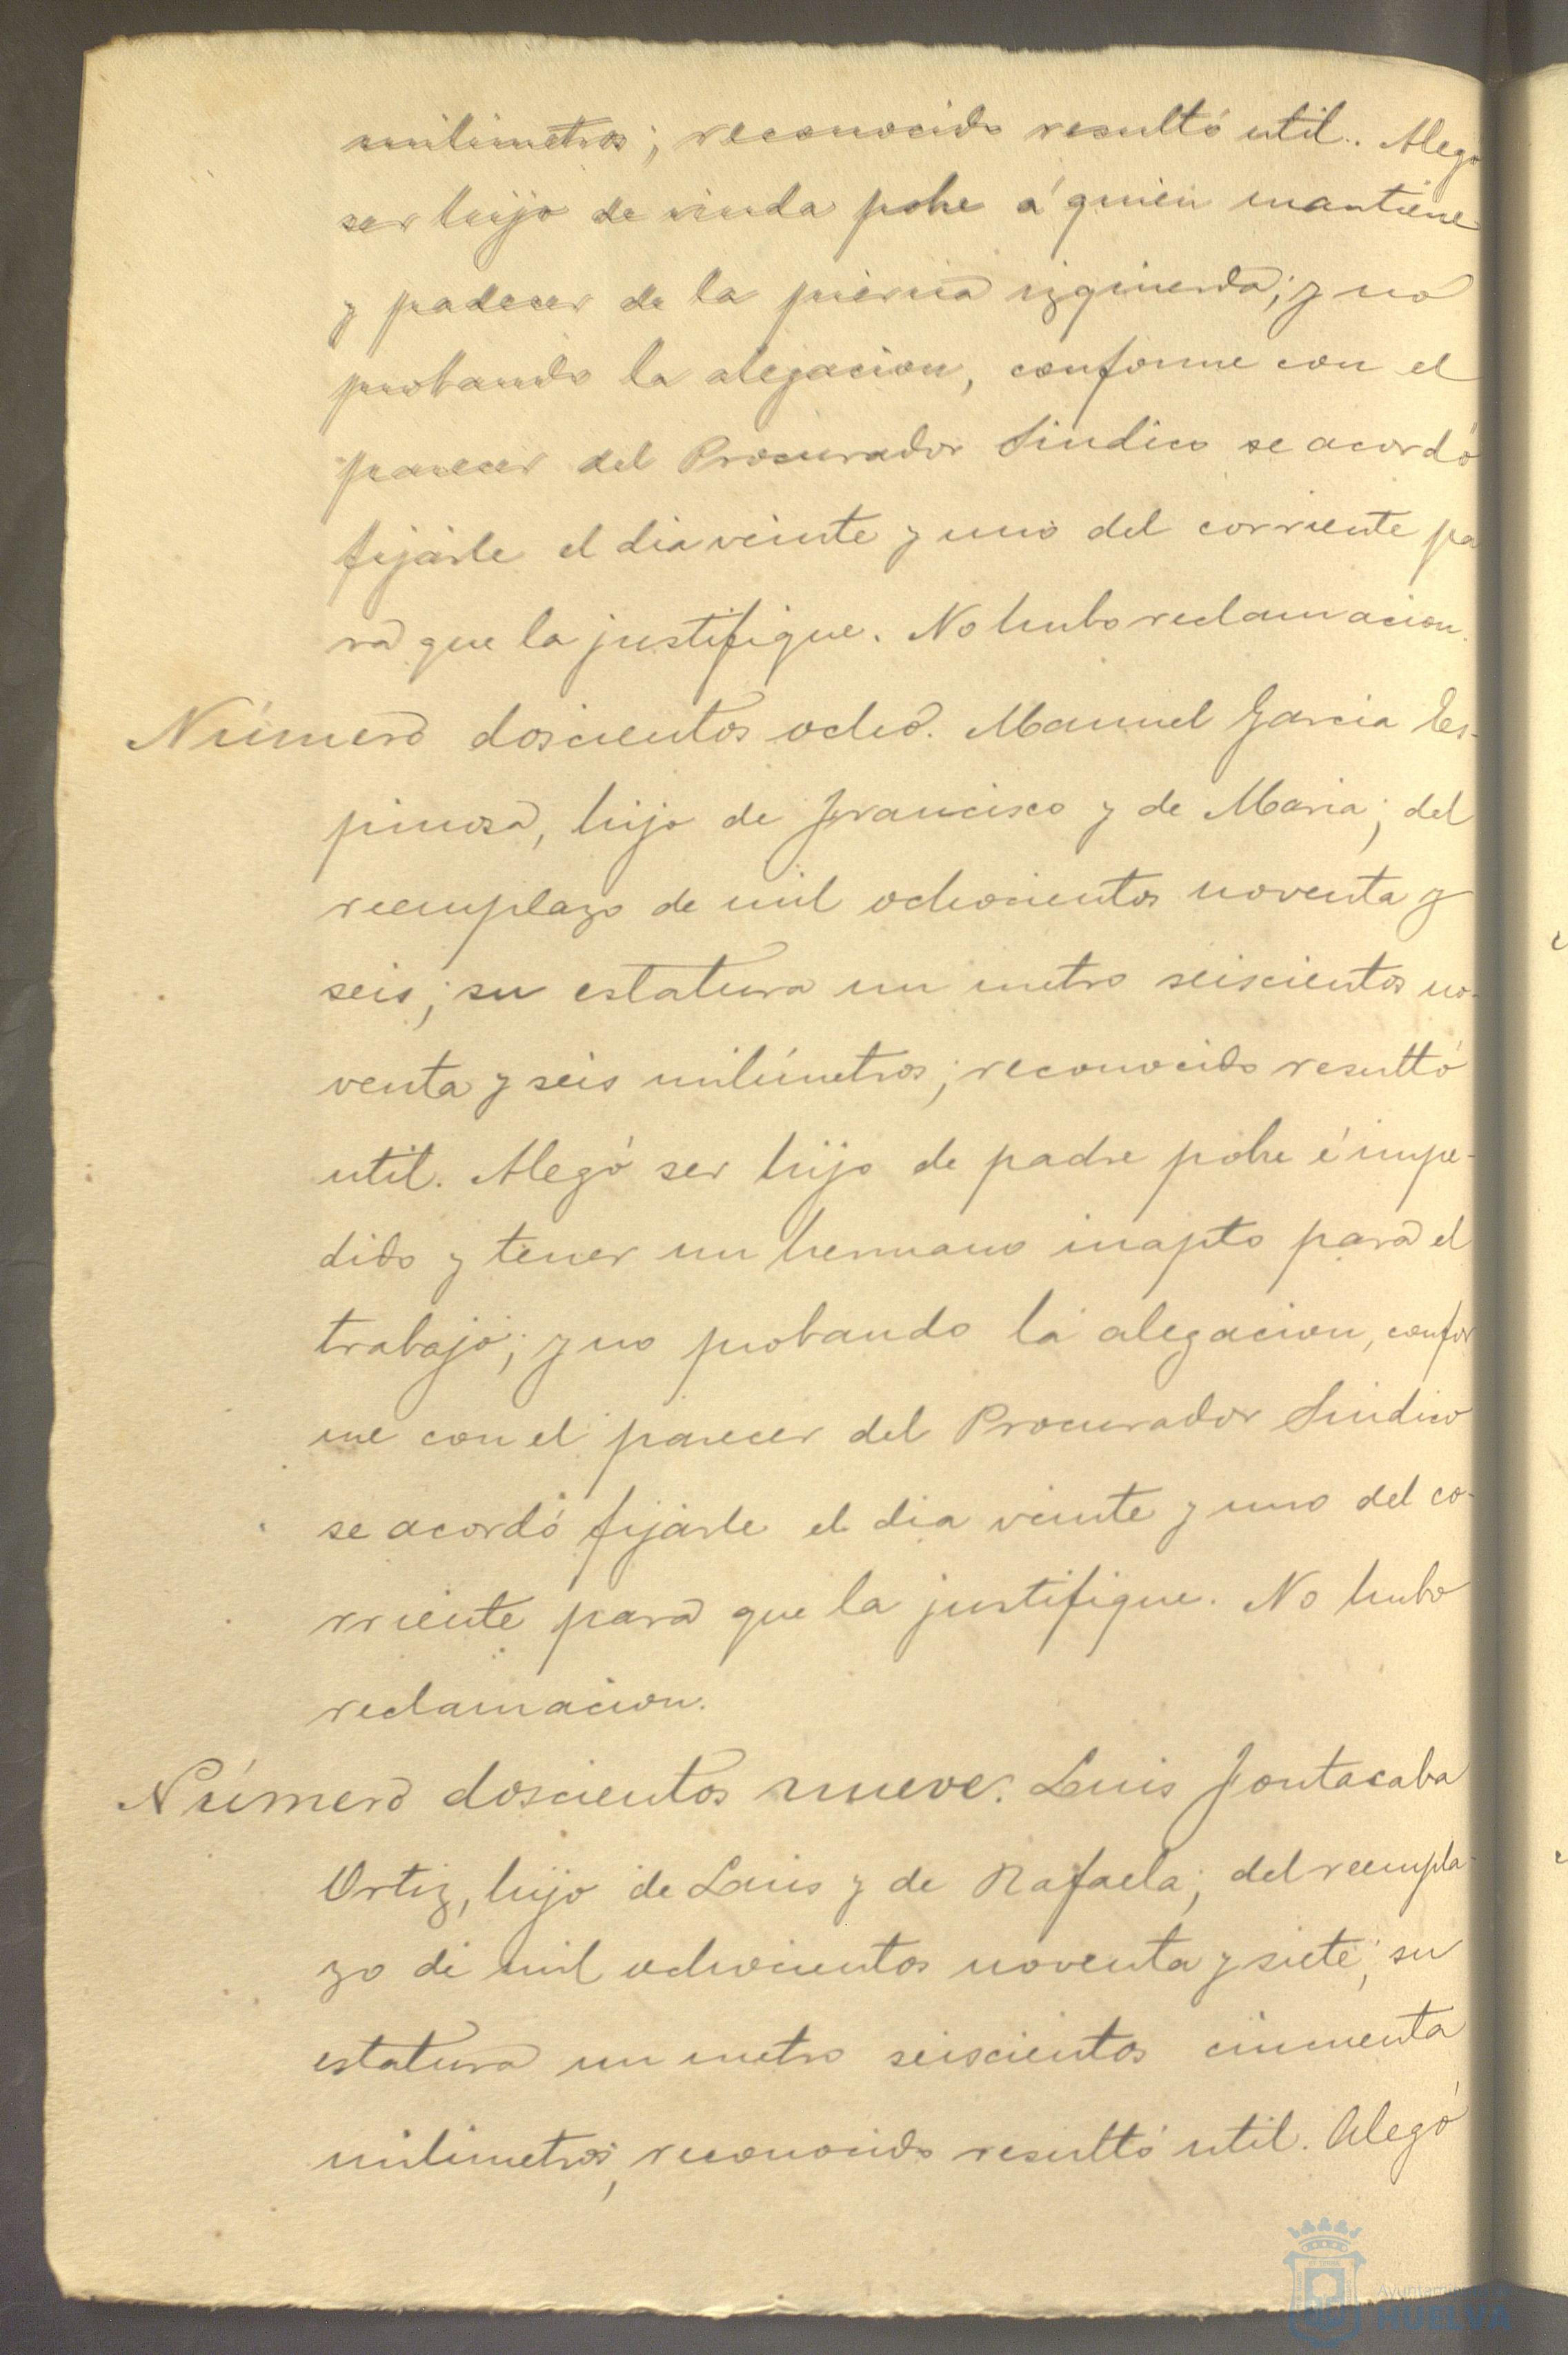 milimetros; reconocido resultó util. Alegó
ser hijo de viuda pobre á quien mantiene
y padecer de la pierna izquierda; y no
probando la alegacion, conforme con el
parecer del Procurador Sindico se acordó
fijarle el dia veinte y uno del corriente pa
ra que la justifique. No hubo reclamacion.
Número doscientos ocho. Manuel Garcia Es-
pinosa, hijo de Francisco y de Maria; del
reemplazo de mil ochocientos noventa y
seis; su estatura un metro seiscientos no-
venta y seis milímetros; reconocido resultó
util. Alegó ser hijo de padre pobre é impe-
dido y tener un hermano inapto para el
trabajo; y no probando la alegacion, confor
me con el parecer del Procurador Sindico
se acordó fijarle el dia veinte y uno del co-
rriente para que la justifique. No hubo
reclamacion.
Número doscientos nueve. Luis Jontacaba
Ortiz, hijo de Luis y de Rafaela; del reempla-
zo de mil ochocientos noventa y siete; su
estatura un metro seiscientos cincuenta
milimetros, reconocido resultó util. Alegó
HUELVA